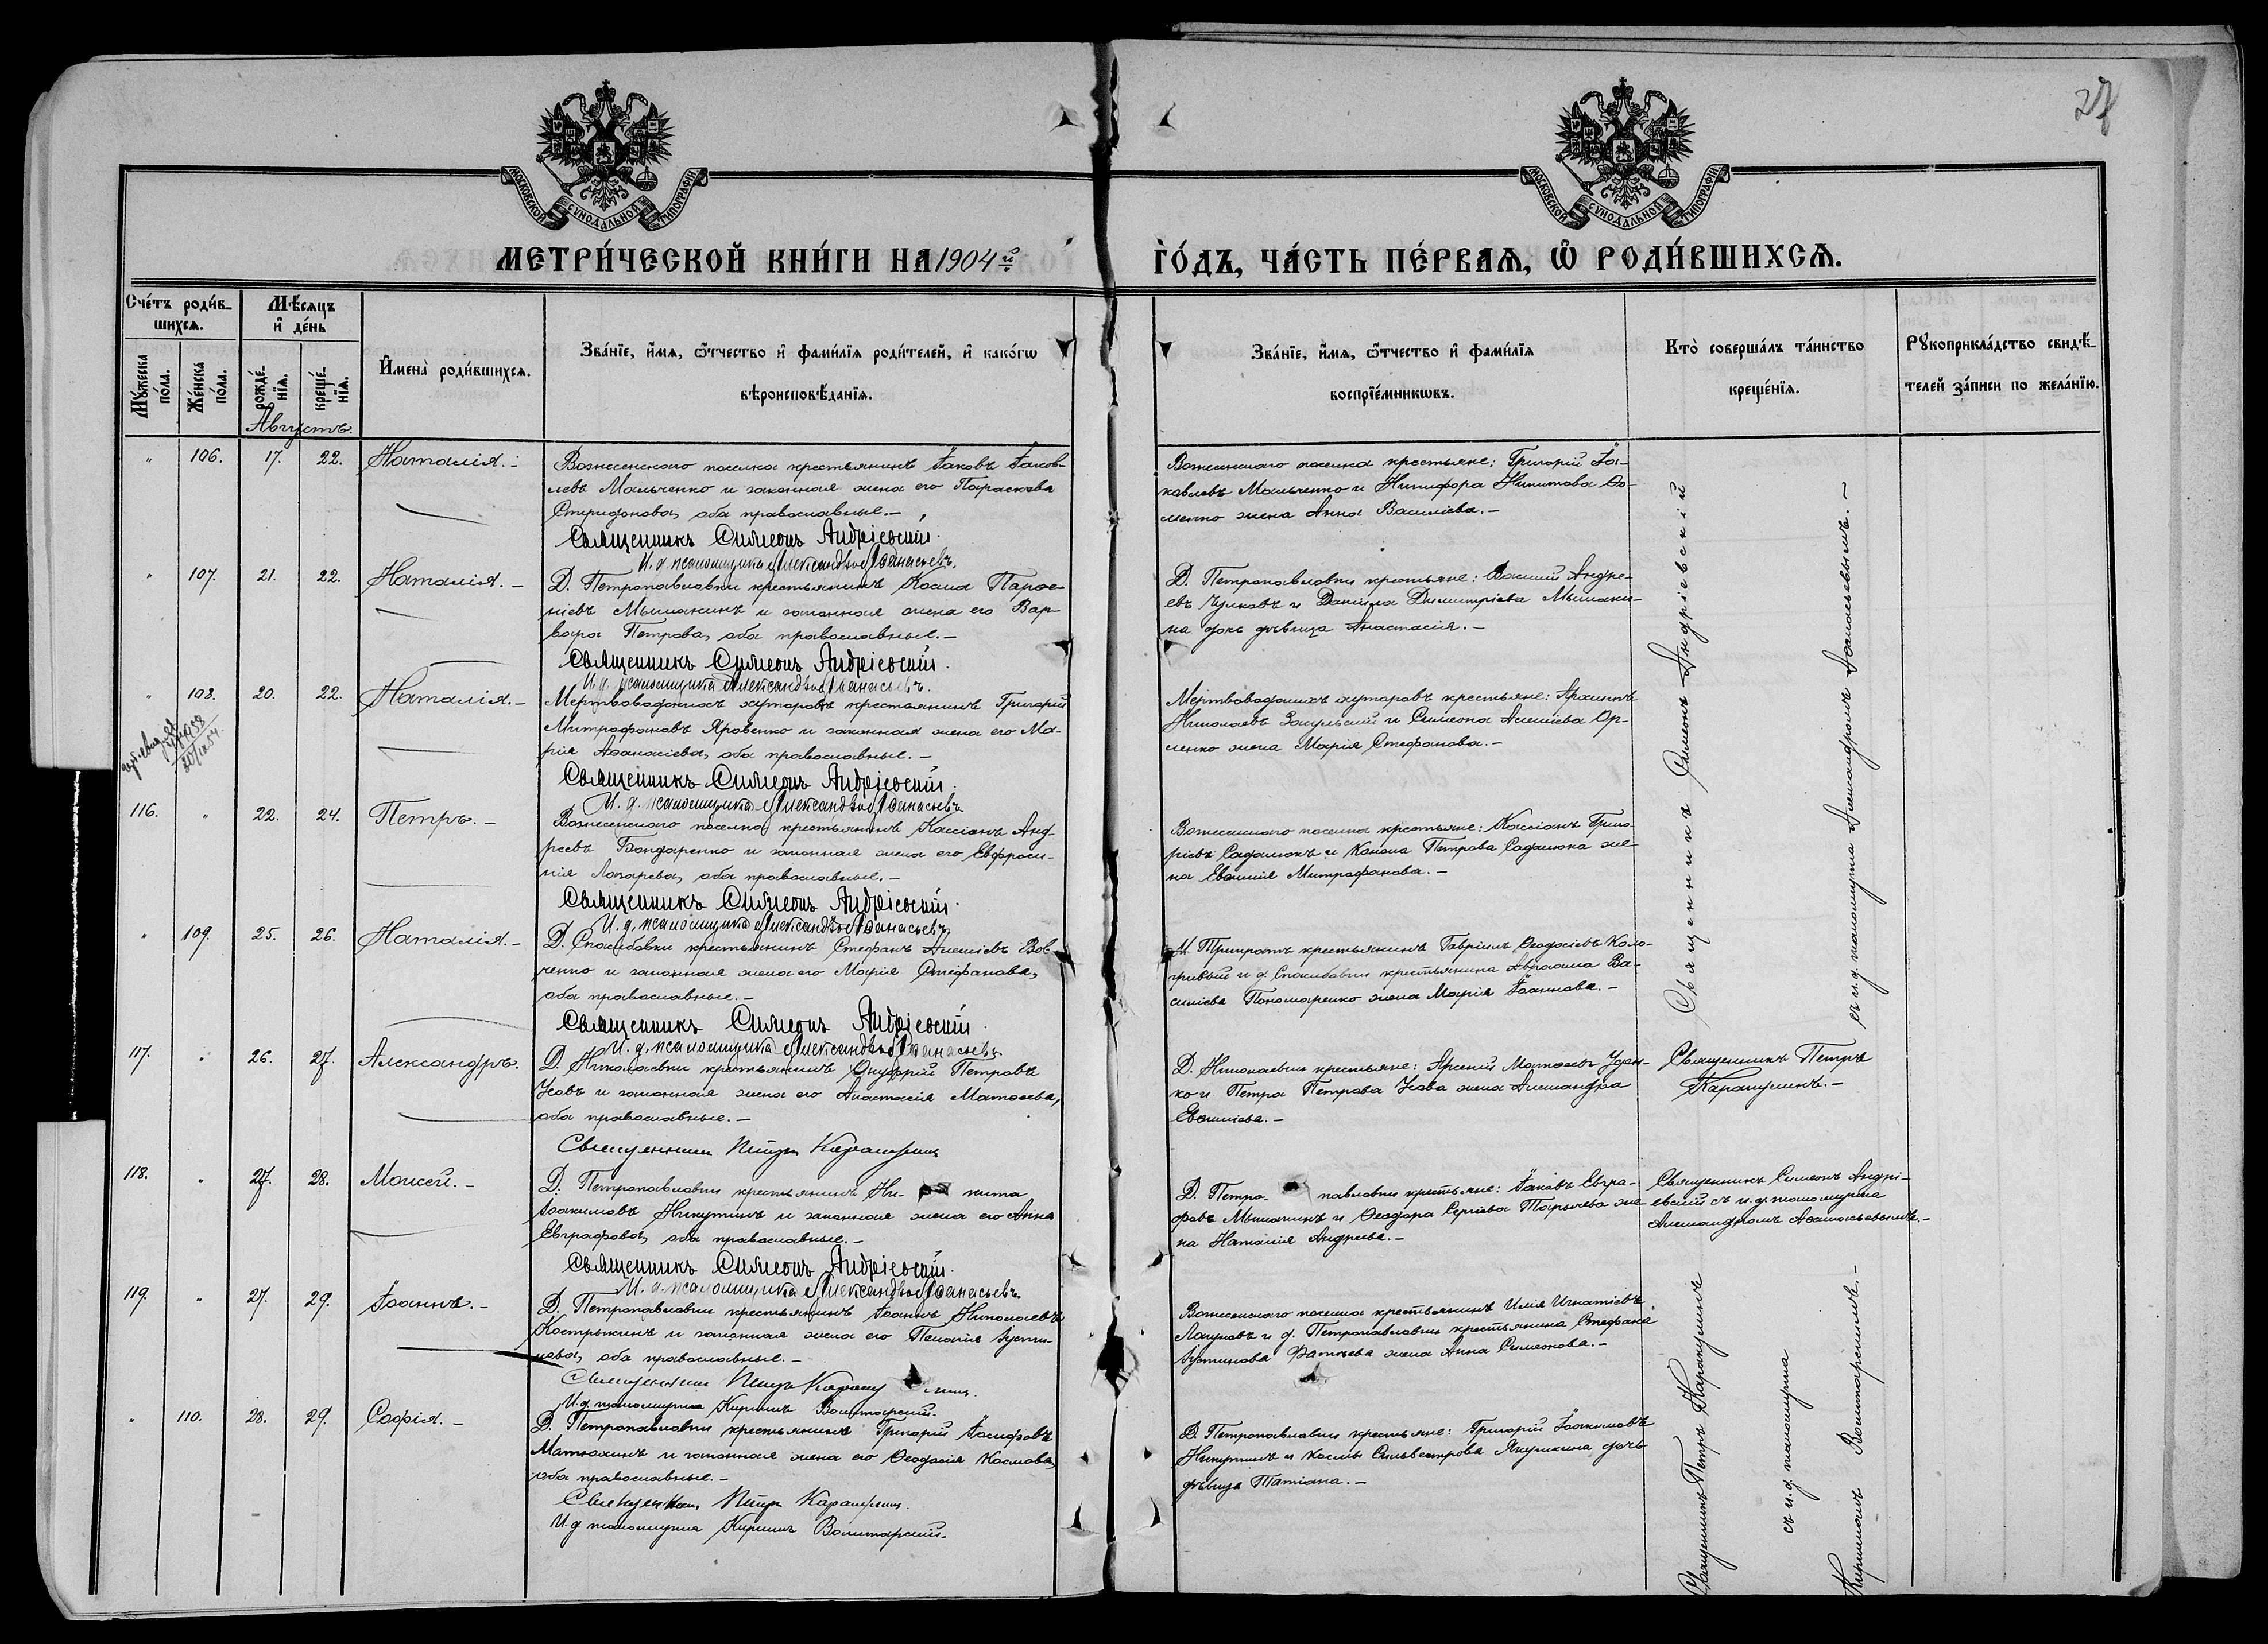 27
МОСКОВСКОЙ СУНОДАЛЬНОЙ ТИПОГРАФІИ
МОСКОВСКОЙ СУНОДАЛЬНОЙ ТИПОГРАФІИ
МЕТРИ́ЧЕСКОЙ КНИ́ГИ НА 1904й
ГО́ДЪ, ЧА́СТЬ ПЕ́РВАѦ, Ѡ҆ РОДИ́ВШИХСѦ.
Сче́тъ роди́в-
шихсѧ.
Мѣ́сѧцъ
и҆ де́нь
Мꙋ́жеска
по́ла.
Же́нска
по́ла.
рожде́-
нїѧ.
креще́-
нїѧ.
И҆мена̀ роди́вшихсѧ.
Зва́нїе, и҆́мѧ, ѻ҆́тчество и҆ фами́лїѧ роди́телей, и҆ како́гѡ
вѣроисповѣ́данїѧ.
Зва́нїе, и҆́мѧ, ѻ҆́тчество и҆ фами́лїѧ
воспрїе́мникѡвъ.
Кто̀ соверша́лъ та́инство
креще́нїѧ.
Рꙋкоприкла́дство свидѣ́-
телей за́писи по жела́нїю.
Августъ.
" 106. 17. 22. Наталія.-
Вознесенскаго поселка крестьянинъ Іаковъ Іаков-
левъ Мальченко и законная жена его Параскева
Спиридонова, оба православные.-
Священникъ Симеонъ Андріевскій.
И. д. псаломщика Александръ Аѳанасьевъ.
Вознесенскаго поселка крестьяне: Григорій Іа-
ковлевъ Мальченко и Никифора Никитова
жена Анна Василіева.-
" 107. 21. 22. Наталія.-
Д. Петропавловки крестьянинъ Косма Парѳе-
ніевъ Мышакинъ и законная жена его Вар-
вара Петрова, оба православные.-
Священникъ Симеонъ Андріевскій.
И. д. псаломщика Александръ Аѳанасьевъ.
Д. Петропавловки крестьяне: Василій Андре-
евъ Чулковъ и Даніила Димитріева Мышаки-
на дочь дѣвица Анастасія.-
" 108. 20. 22. Наталія.-
Мертвоводскихъ хуторовъ крестьянинъ Григорій
Митрофановъ Яровенко и законная жена его Ма-
рія Аѳанасіева, оба православные.-
Священникъ Симеонъ Андріевскій.
И. д. псаломщика Александръ Аѳанасьевъ
Мертвоводскихъ хуторовъ крестьяне: Архиппъ
Николаевъ и Симеона Алексіева Ор-
ленко жена Марія Стефанова.-
116. " 22. 24. Петръ.-
Вознесенскаго поселка крестьянинъ Кассіанъ Анд-
реевъ Бондаренко и законная жена его Евфроси-
нія Лазарева, оба православные.-
Священникъ Симеонъ Андріевскій.
И. д. псаломщика Александръ Аѳанасьевъ
Вознесенскаго поселка крестьяне: Кассіанъ Григо-
ріевъ Садлюкъ и Конона Петрова Садлюка же-
на Евѳимія Митрофанова.-
" 109. 25. 26. Наталія.-
Д. Спасибовки крестьянинъ Стефанъ Алексіевъ Вов-
ченко и законная жена его Марія Стефанова,
оба православные.-
Священникъ Симеонъ Андріевскій.
И. д. псаломщика Александръ Аѳанасьевъ
М. Трикратъ крестьянинъ Гавріилъ Ѳеодосіевъ Коло-
гривый и д. Спасибовки крестьянина Авраама Ва-
силіева Пономаренко жена Марія Іоаннова.-
Священникъ Симеонъ Андріевскій
съ и. д. псаломщика Александромъ Аѳанасьевымъ.-
117. " 26. 27. Александръ.
Д. Николаевки крестьянинъ Онуфрій Петровъ
Усовъ и законная жена его Анастасія Матѳеева,
оба православные.-
Священникъ Петръ Каракулинъ
Д. Николаевки крестьяне: Арсеній Матѳеевъ
ко и Петра Петрова Усова жена Александра
Евѳиміева.-
Священникъ Петръ
Каракулинъ.-
118. " 27. 28. Моисей.-
Д. Петропавловки крестьянинъ Ни- кита
Іоакимовъ Никутинъ и законная жена его Анна
Евграфова, оба православные.-
Священникъ Симеонъ Андріевскій.
И. д. псаломщика Александръ Аѳанасьевъ
Д. Петро- павловки крестьяне: Іаковъ Евгра-
фовъ Мышакинъ и Ѳеодора Сергіева Тарычева же-
на Наталія Андреева.-
Священникъ Симеонъ Андрі-
евскій съ и. д. псаломщика
Александромъ Аѳанасьевымъ.-
119. " 27. 29. Іоаннъ.-
Д. Петропавловки крестьянинъ Іоаннъ Николаевъ
Кострыкинъ и законная жена его Пелагія Іусти-
нова, оба православные.-
Священникъ Петръ Каракулинъ.
И. д. псаломщика Кириллъ Волитарскій.
Вознесенскаго поселка крестьянинъ Илія Игнатіевъ
Лагуновъ и д. Петропавловки крестьянина Стефана
Іустинова Фатѣева жена Анна Симеонова.-
" 110. 28. 29. Софія.-
Д. Петропавловки крестьянинъ Григорій Іосифовъ
Матюхинъ и законная жена его Ѳеодосія Космова,
оба православные.-
Священникъ Петръ Каракулинъ.
И. д. псаломщика Кириллъ Волитарскій.
Д. Петропавловки крестьяне: Григорій Іоакимовъ
Никутинъ и Космы Сильвестрова Якушкина дочь
дѣвица Татіана.-
Священникъ Петръ Каракулинъ
съ и. д. псаломщика
Кирилломъ Волитарскимъ.-